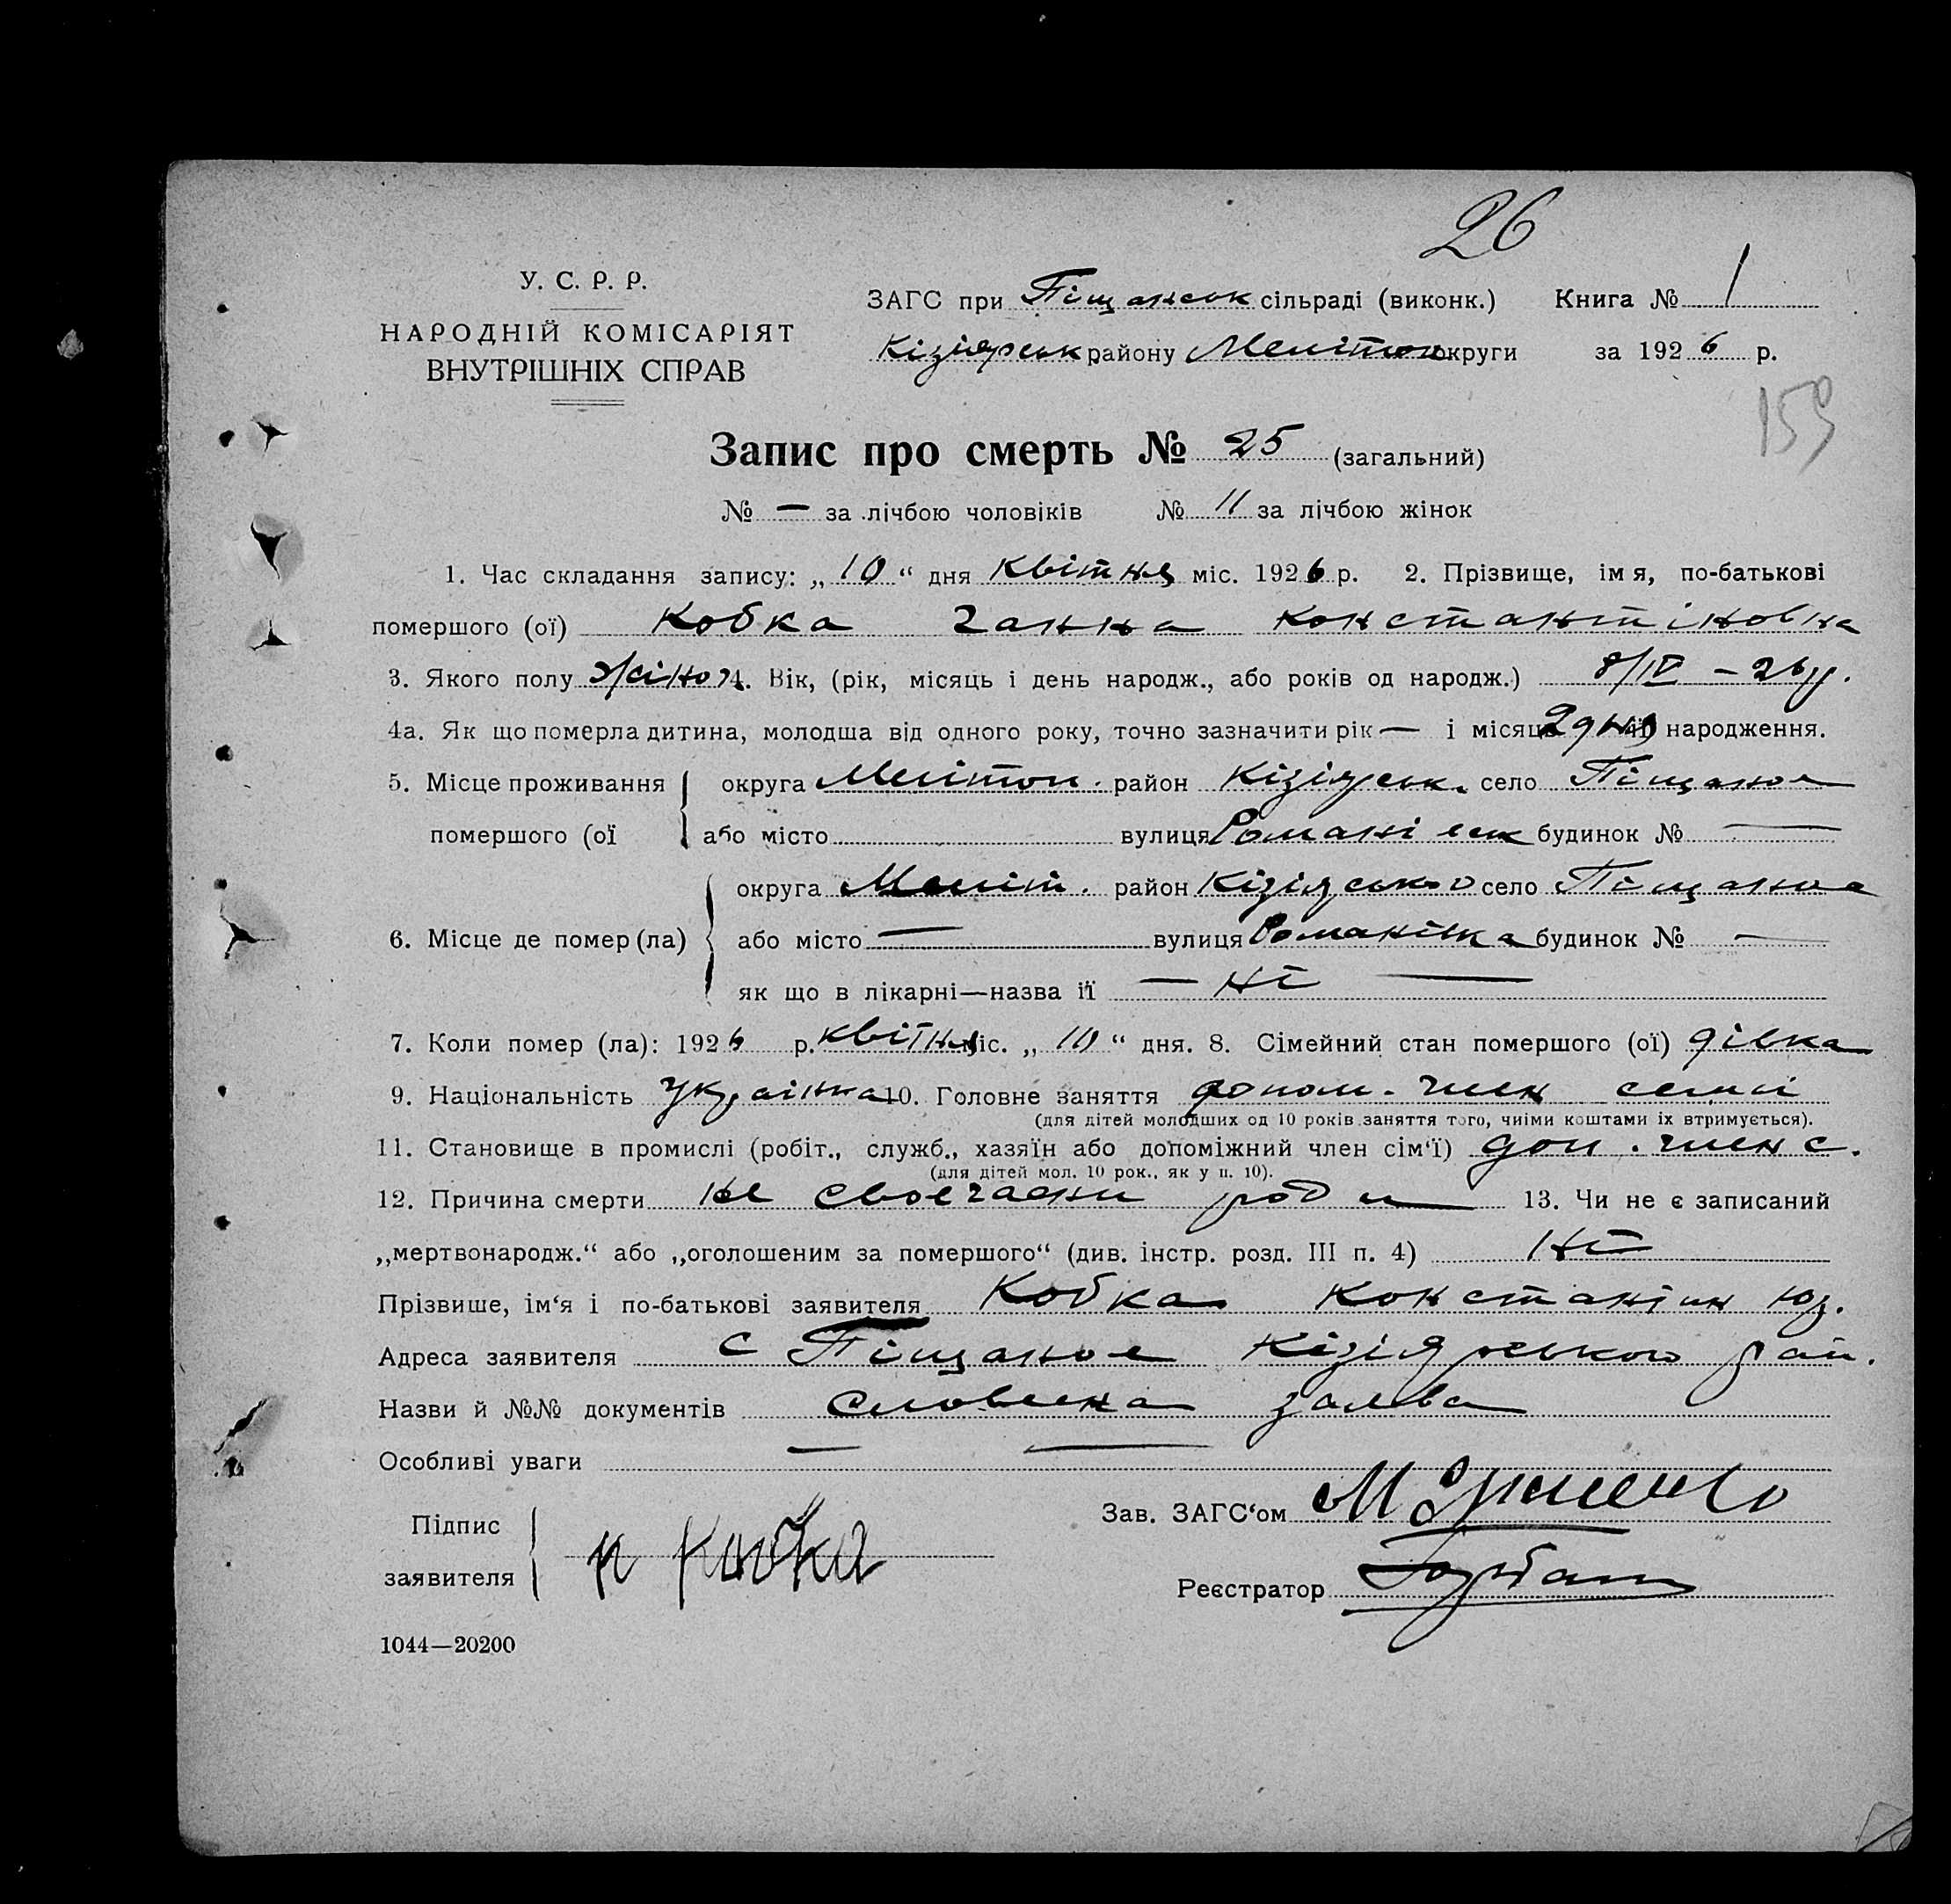 26
У. С. Р. Р.
НАРОДНІЙ КОМІСАРІЯТ
ВНУТРІШНІХ СПРАВ
ЗАГС при Піщанськ сільраді (виконк.) Книга № 1
Кізіярськ району Мелітоп округи за 1926 р.
159
Запис про смерть № 25 (загальний)
№ — за лічбою чоловіків № 11 за лічбою жінок
1. Час складання запису: „10“ дня квітня міс. 1926 р. 2. Прізвище, імя, по-батькові
помершого (ої) Кобка Ганна Константіновна
3. Якого полу жіноч 4. Вік, (рік, місяць і день народж., або років од народж.) 8/IV – 26 р.
4а. Як що померла дитина, молодша від одного року, точно зазначити рік — і місяць 2 дня її народження.
5. Місце проживання округа Мелітоп. район Кізіярськ. село Піщаное
помершого (ої або місто вулиця будинок № —
округа Меліт. район Кізіярського село Піщаное
6. Місце де помер (ла) або місто — вулиця Романівка будинок № —
як що в лікарні—назва її — ні —
7. Коли помер (ла): 1926 р. квітня міс. „10“ дня. 8. Сімейний стан помершого (ої) дівка
9. Національність українка 10. Головне заняття допом. член семії
(для дітей молодших од 10 років заняття того, чиїми коштами їх втримується).
11. Становище в промислі (робіт., служб., хазяїн або допоміжний член сім‘ї) доп. член с.
(для дітей мол. 10 рок., як у п. 10).
12. Причина смерти не своечасни роди 13. Чи не є записаний
„мертвонародж.“ або „оголошеним за помершого“ (див. інстр. розд. III п. 4) ні
Прізвище, ім‘я і по-батькові заявителя Кобка Константин Юз.
Адреса заявителя с Піщаное Кізіярського рай.
Назви й №№ документів словесна заява
Особливі уваги — —
Підпис
заявителя К Кобка
Зав. ЗАГС‘ом
Реєстратор
1044—20200